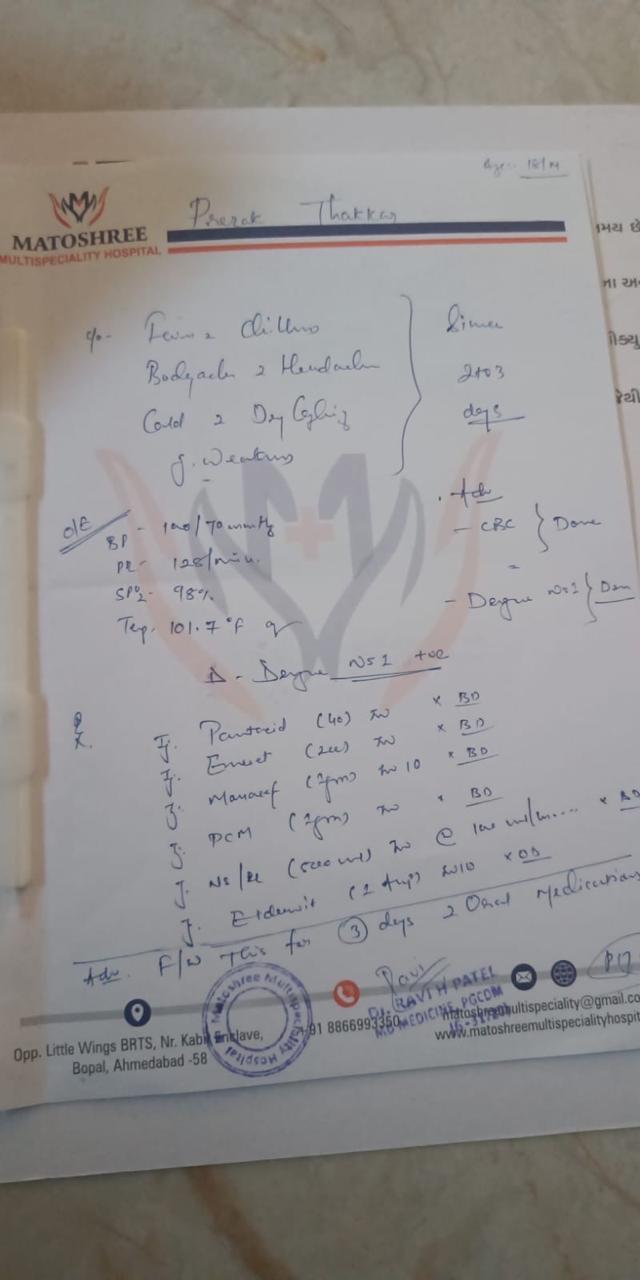 Age:- 18/M
Prerak Thakkar
MATOSHREE
MULTISPECIALITY HOSPITAL
c/o- Fever & Chillns
Bodyache & Headache
Cold & Dry
g. Weakness
Since
2 to 3
days
O/E
BP - 100/70 mmHg
PR - 128/min.
SPO2 - 98%
Temp. 101.7°F
Adv
- CBC } Done
- Dengue NS1 } Done
D - Dengue NS1 +ve
Rx.
Ij. Pantocid (40) IV x BD
Ij. Emeset (2cc) IV x BD
Ij. (1gm) IV x BD
Ij. PCM (1gm) IV x BD
Ij. NS/RL (500 ml) IV @ 100 ml/hr.... x BD
Ij. (1 Amp) IV x OD
Adv. F/w This for 3 days & Oral Medications
Ravi
Dr. RAVI H PATEL
MD MEDICINE, PGCDM
Matoshree Multispeciality Hospital
Opp. Little Wings BRTS, Nr. Kabir Enclave,
Bopal, Ahmedabad -58
+91 8866993350
matoshreemultispeciality@gmail.co
www.matoshreemultispecialityhospit